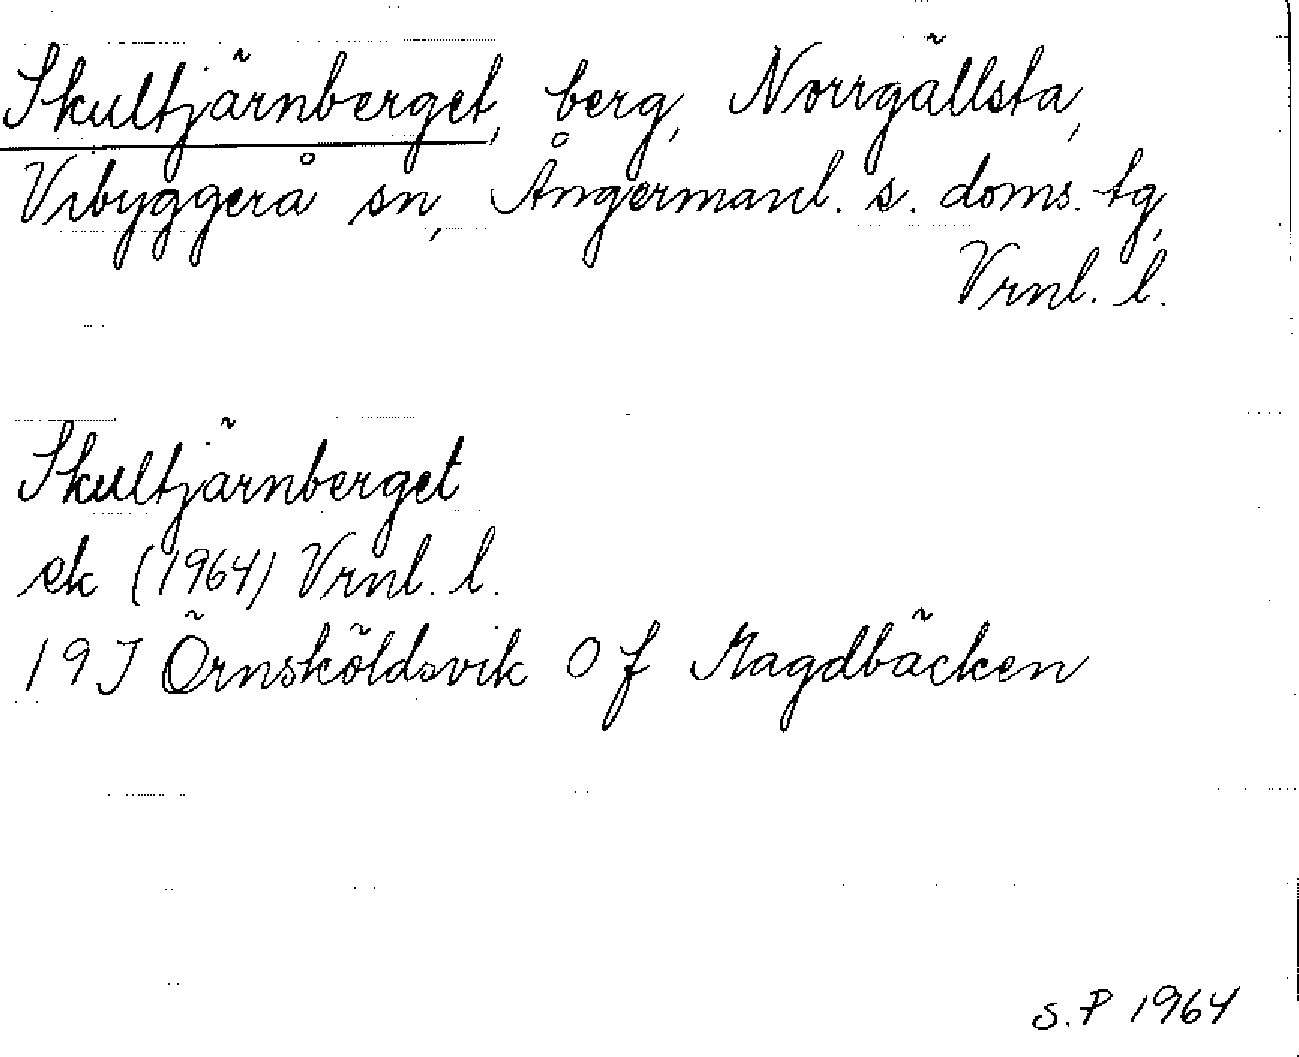 Skultjärnberget, berg, Norrgällsta,
Vibyggerå sn, Ångermanl. s. doms. tg,
Vrnl. l.
Skultjärnberget
ek (1964) Vrnl. l.
19J Örnsköldsvik 0 f Magdbäcken
S.P 1964